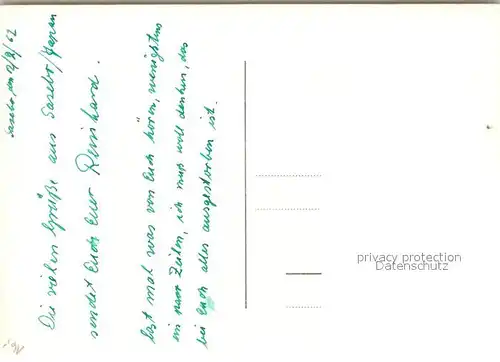 Sasebo, den 2/2/62
Die vielen Grüße aus Sasebo/Japan
sendet Euch Euer Reinhard.
Lazt mal was von Euch hören, wenigstens
ein paar Zeilen, ich muß woll denken, das
bei Euch alles ausgestorben ist.
privacy protection
Datenschutz